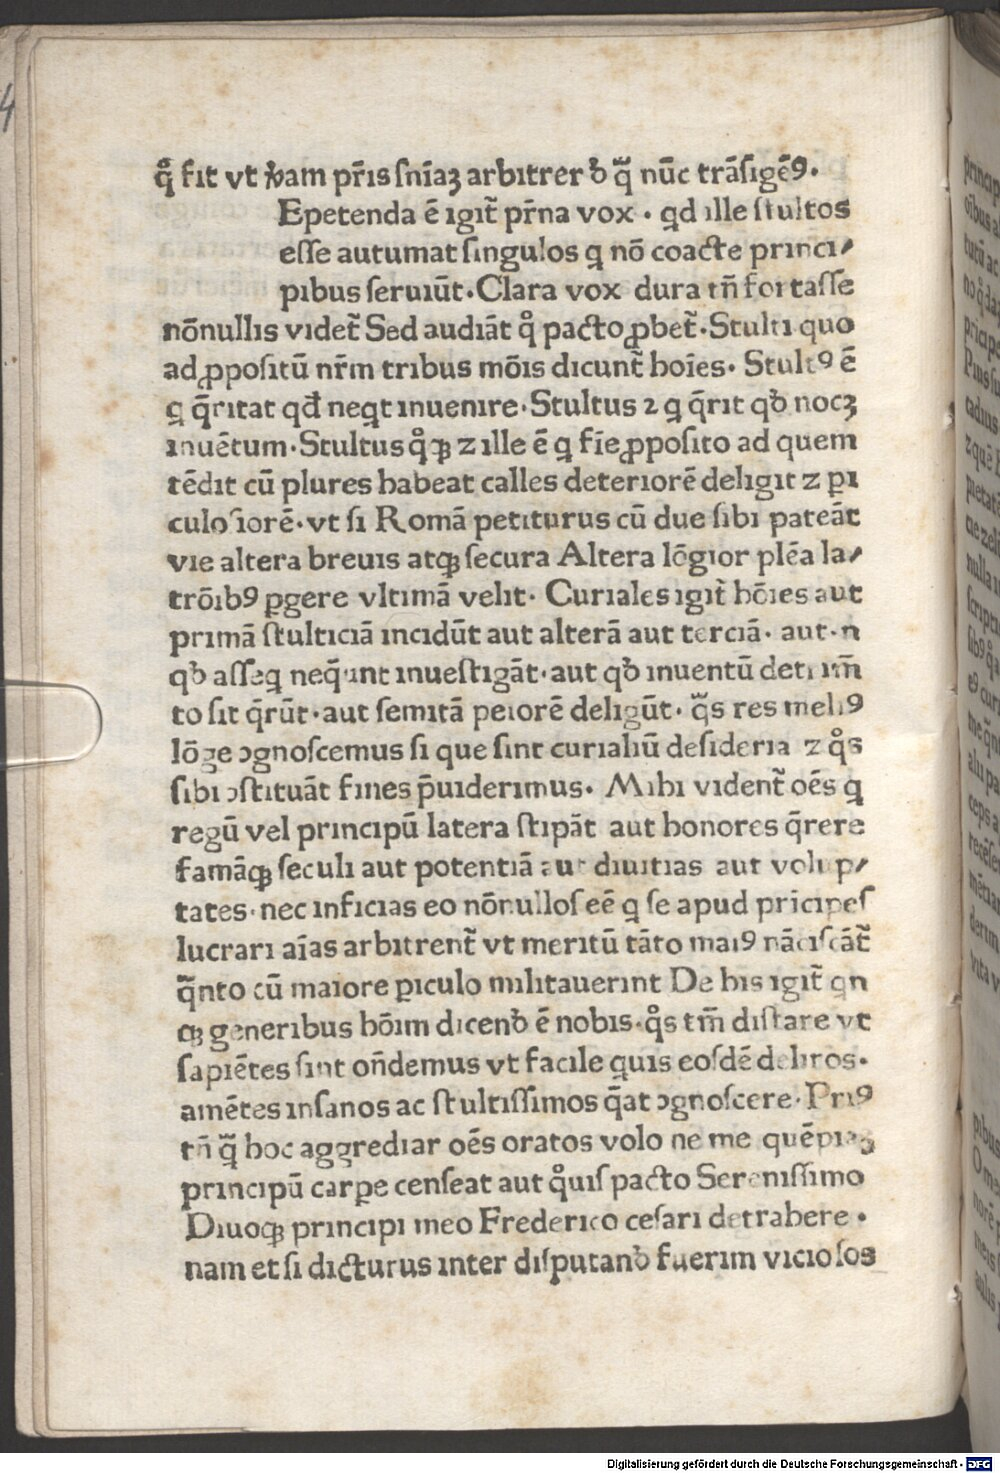 4
q̊ fit vt ꝟam pr̄is sn̄iaʒ arbitrer ð q̃ nūc trāsigēꝰ.
Epetenda ē igit᷑ pr̄na vox · qd ille stultos
esse autumat singulos q nō coacte princi⸗
pibus seruiūt. Clara vox dura tn̄ fortasse
nōnullis videt᷑ Sed audiāt q̊ pacto ꝓbet᷑. Stulti quo
ad ꝓpositū nr̄m tribus mōis dicunt᷑ hoīes. Stultꝰ ē
q q̄ritat qd̄ neqt inuenire. Stultus ⁊ q q̄rit qð nocʒ
inuētum. Stultus q̊qꝫ ⁊ ille ē q fīe ꝓposito ad quem
tēdit cū plures habeat calles deteriorē deligit ⁊ ꝑi
culosiorē. vt si Romā petiturus cū due sibi pateāt
vie altera breuis atqꝫ secura Altera lōgior plēa la⸗
trōibꝰ ꝑgere vltimā velit. Curiales igit᷑ hōies aut
primā stulticiā incidūt aut alterā aut terciā. aut. n
qð asseq neq̄unt inuestigāt. aut qð inuentū detrim̄
to sit q̄rūt. aut semitā peiorē deligūt. q̃s res meliꝰ
lōge ꝯgnoscemus si que sint curialiū desideria ⁊ q̊s
sibi ꝯstituāt fines p̄uiderimus. Mihi vident᷑ oēs q
regū vel principū latera stipāt aut honores q̄rere
famāqꝫ seculi aut potentiā aut diuitias aut volup⸗
tates. nec inficias eo nōnullos eē q se apud pricipes
lucrari aīas arbitrent᷑ vt meritū tāto maiꝰ nāciscāt᷑
q̃nto cū maiore ꝑiculo militauerint De his igit᷑ qn
qꝫ generibus hōim dicenð ē nobis. q̊s tm̄ distare vt
sapiētes sint on̄demus vt facile quis eosdē deliros.
amētes insanos ac stultissimos q̄at ꝯgnoscere. Priꝰ
tn̄ q̃ hoc aggrediar oēs oratos volo ne me quēpiaʒ
principū carpe censeat aut q̊uis pacto Serenissimo
Diuoqꝫ principi meo Frederico cesari detrahere.
nam et si dicturus inter disputanð fuerim viciosos
Digitalisierung gefördert durch die Deutsche Forschungsgemeinschaft - DFG